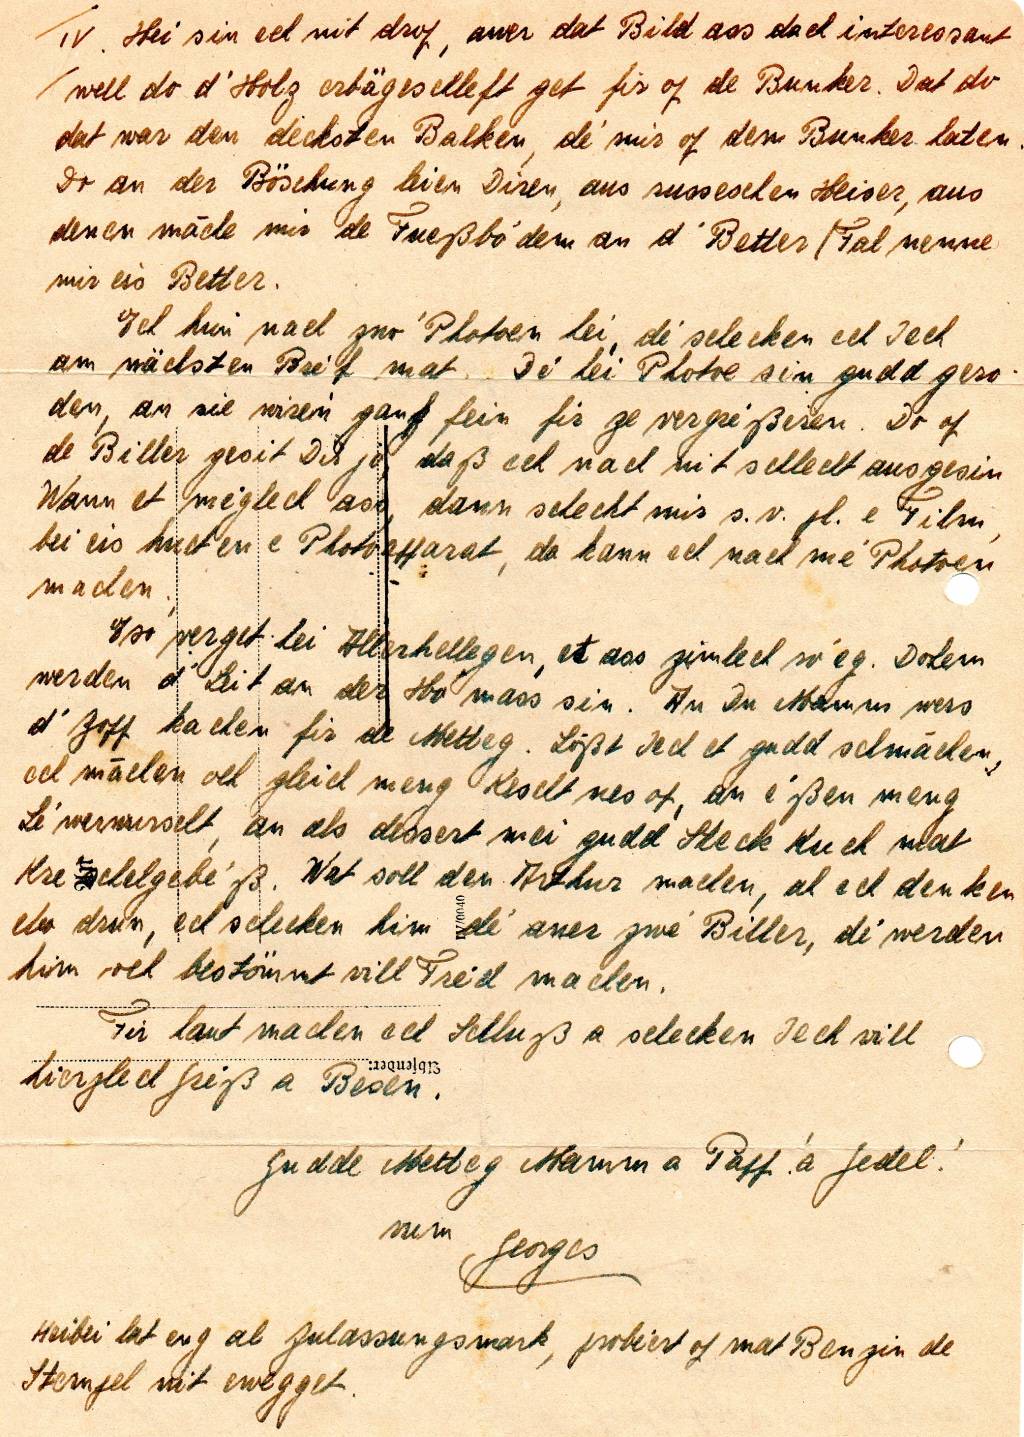 IV. Hei sin ech nit drop, awer dat Bild ass dach interessant
well do d'Holz erbägeschleft get fir op de Bunker. Dat do
dat war den decksten Balken, dé mir op dem Bunker haten.
Do an der Böschung leien Diren, aus russeschen Heiser, aus
denen mäche mir de Fueßbo'dem an d'Better (Fal nenne
mir eis Better.
Ech hun nach zwo' Photoen hei, dé schecken ech Iech
am nächsten Bréf mat. Dé hei Photoe sin gudd gero-
den, an sie wiren ganz fein fir ze vergréißeren. Do op
de Biller gesit Dir jo, daß ech nach nit schlecht ausgesin
Wann et méglech ass, dann schecht mir s.v.pl. e Film,
bei eis huet en e Photoapparat, da kann ech nach mé Photoen
machen.
Eso' verget hei Allerhellegen, et ass zimlech ro'eg. Dohem
werden d'Leit an der Ho'mass sin. An Du Mamm wers
d'Zopp kachen fir de Metteg. Loßt Iech et gudd schmächen,
ech mächen och gleich meng Kescht nes op, an e'ßen meng
Lé werwurscht, an als dessert mei gudd Steck Kuch mat
Kre schelgebé ß. Wat soll den Arthur machen, al ech denken
eko drun, ech schecken him dé aner zwé Biller, dé werden
him och bestömmt vill Fréd machen.
Fir haut machen ech Schluß a schecken Iech vill
hierzlech Gréiß a Besen.
Gudde Metteg Mamm a Papp! a Jedel!
vum
Georges
Heibei lat eng al Zulassungsmark, probéert op mat Benzin de
Stempel nit ewegget.
Absender: